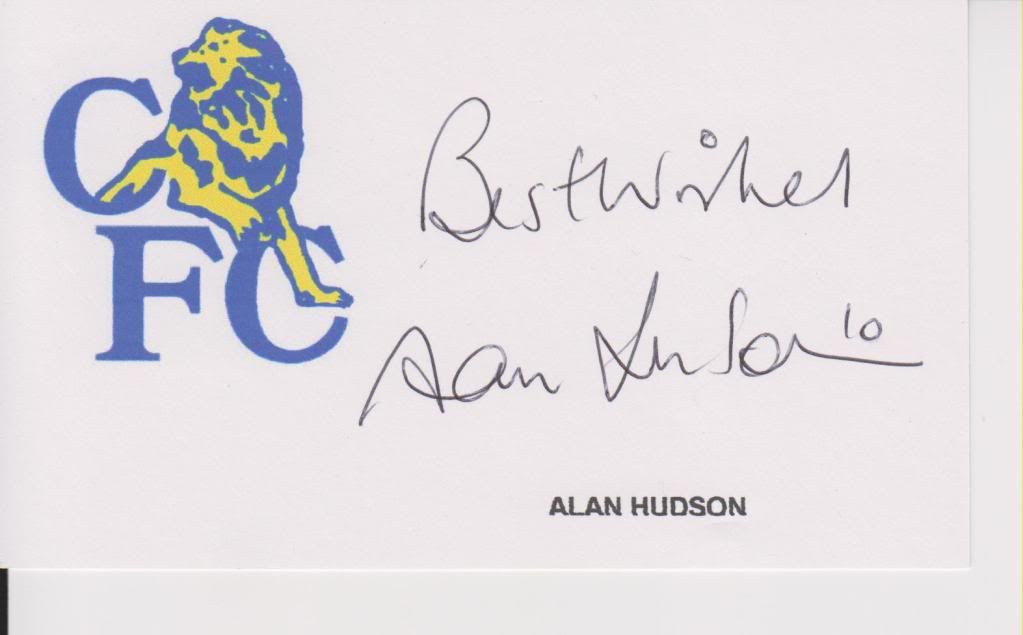 CFC
Best Wishes
Alan Hudson 10
ALAN HUDSON